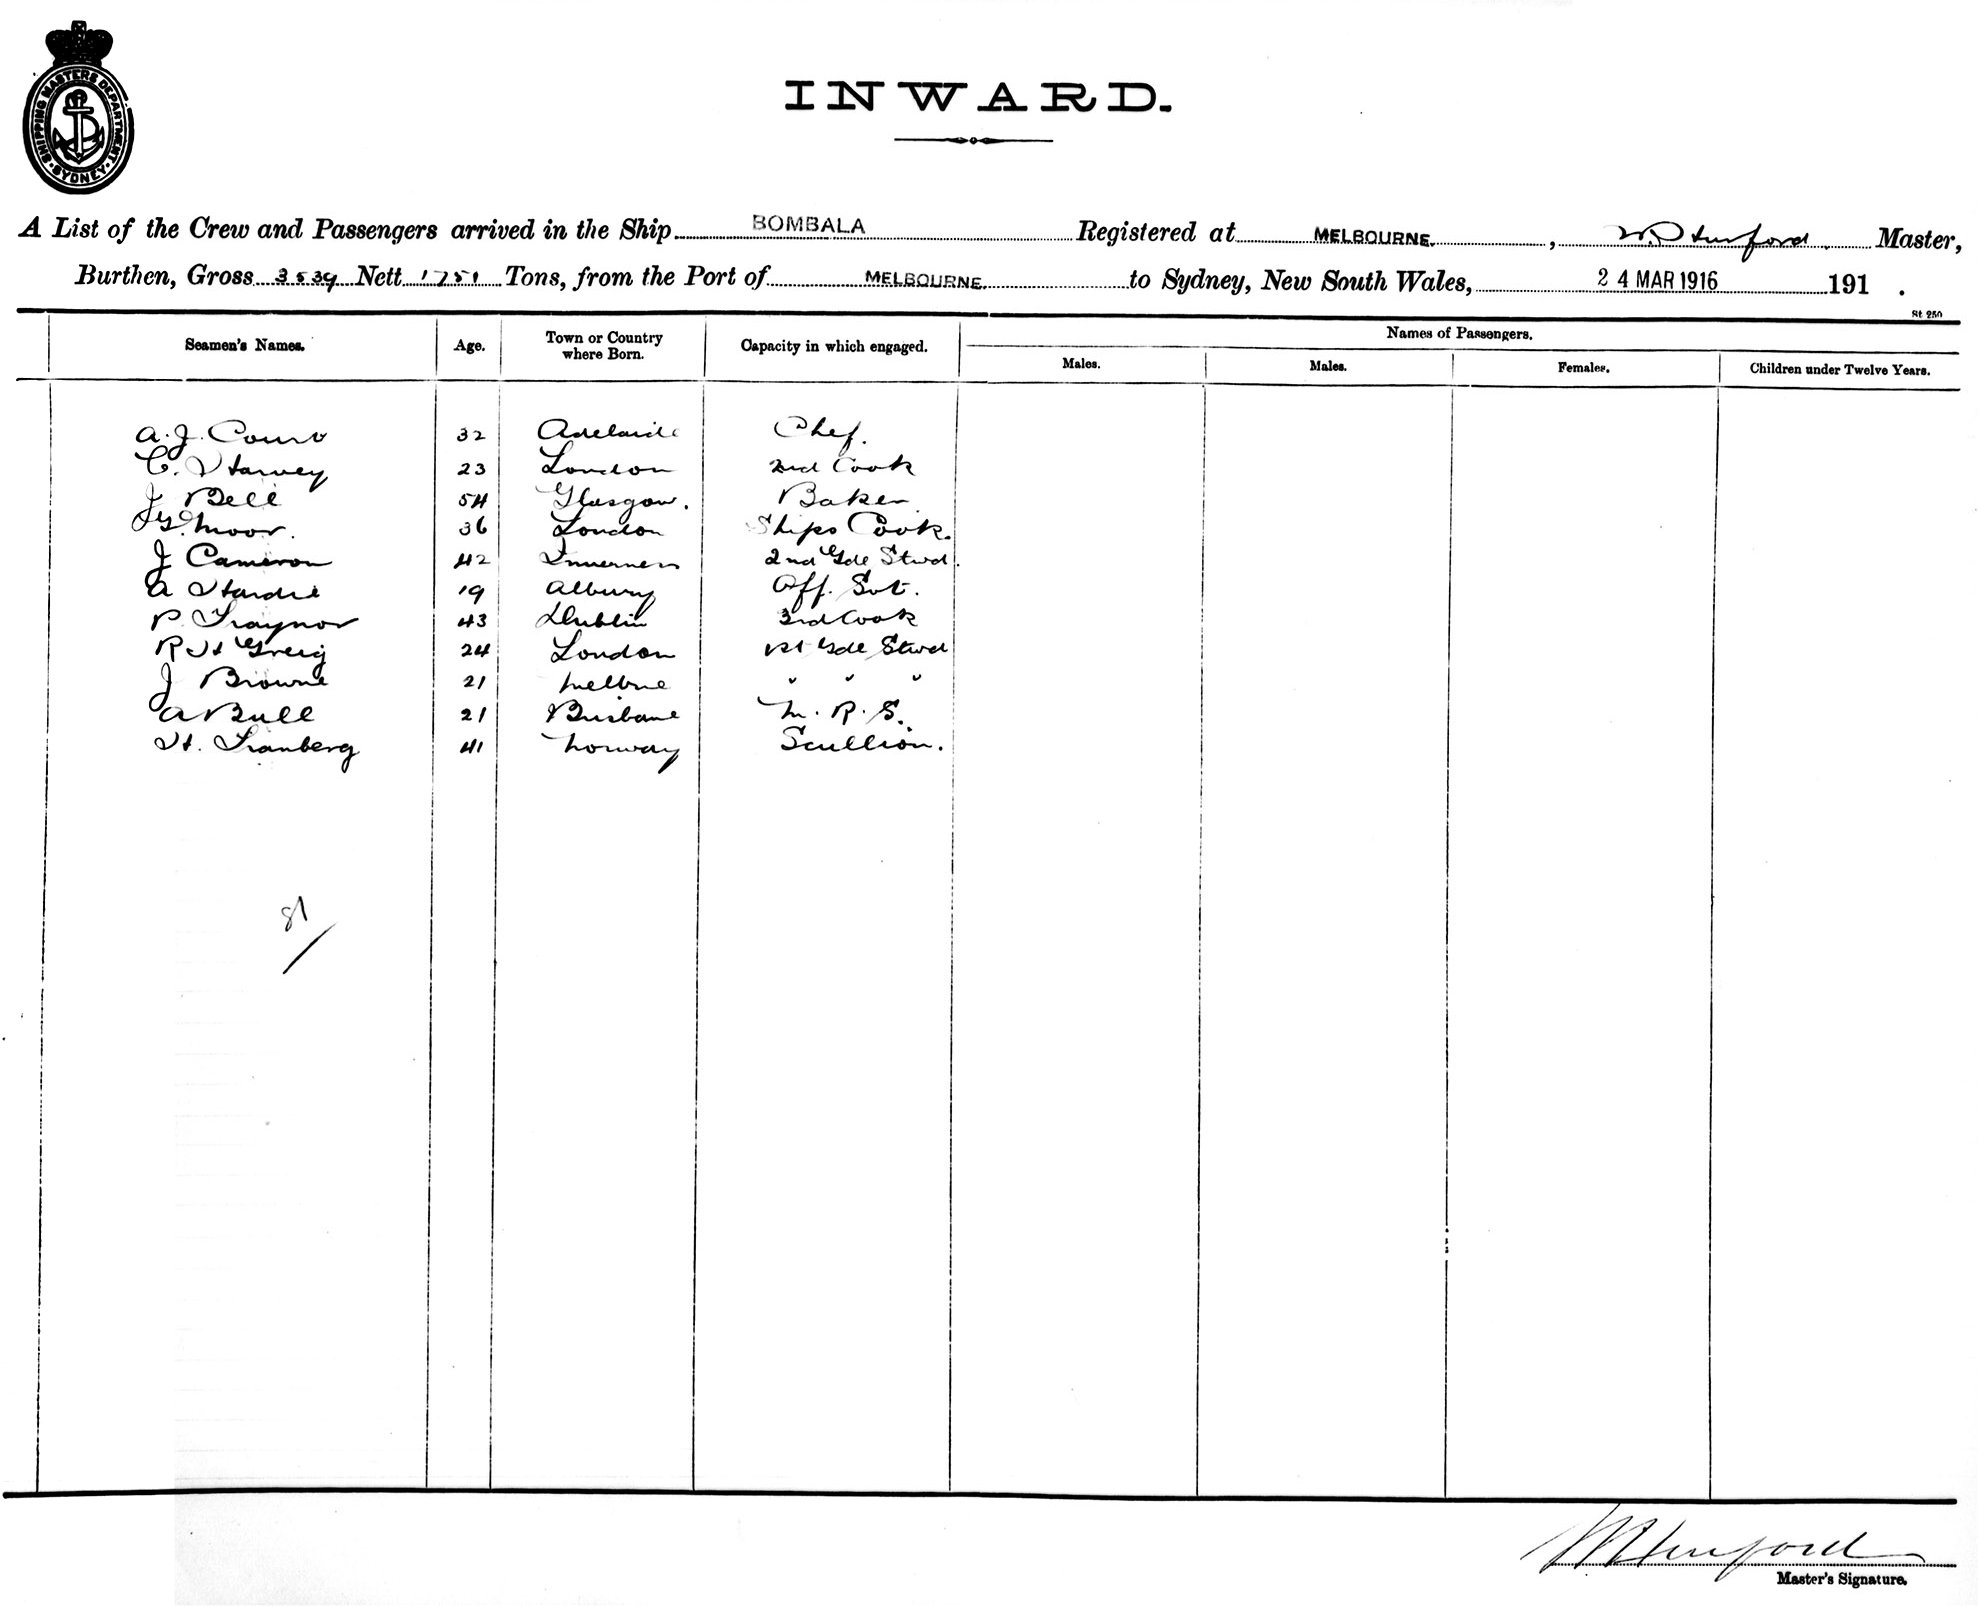 SHIPPING MASTERS DEPARTMENT
SYDNEY
INWARD.
A List of the Crew and Passengers arrived in the Ship BOMBALA Registered at MELBOURNE. , Master,
Burthen, Gross 3539 Nett 1751 Tons, from the Port of MELBOURNE. to Sydney, New South Wales, 24 MAR 1916 191 .
St 250
Seamen's Names. Age. Town or Country where Born. Capacity in which engaged. Names of Passengers.
Males. Males. Females. Children under Twelve Years.
A. J. Court 32 Adelaide Chef.
C. Harvey 23 London 2nd Cook
J Bell 54 Glasgow. Baker
J G Moor. 36 London Ships Cook.
J Cameron 42 Inverness 2nd Gde Stwd.
A Hardie 19 Albury Off. Svt.
P. Traynor 43 Dublin 3rd Cook
R H Greig 24 London 1st Gde Stwd
J Browne 21 Melbne " " "
A Bull 21 Brisbane M. R. S.
H. Tranberg 41 Norway Scullion.
81
Master's Signature.